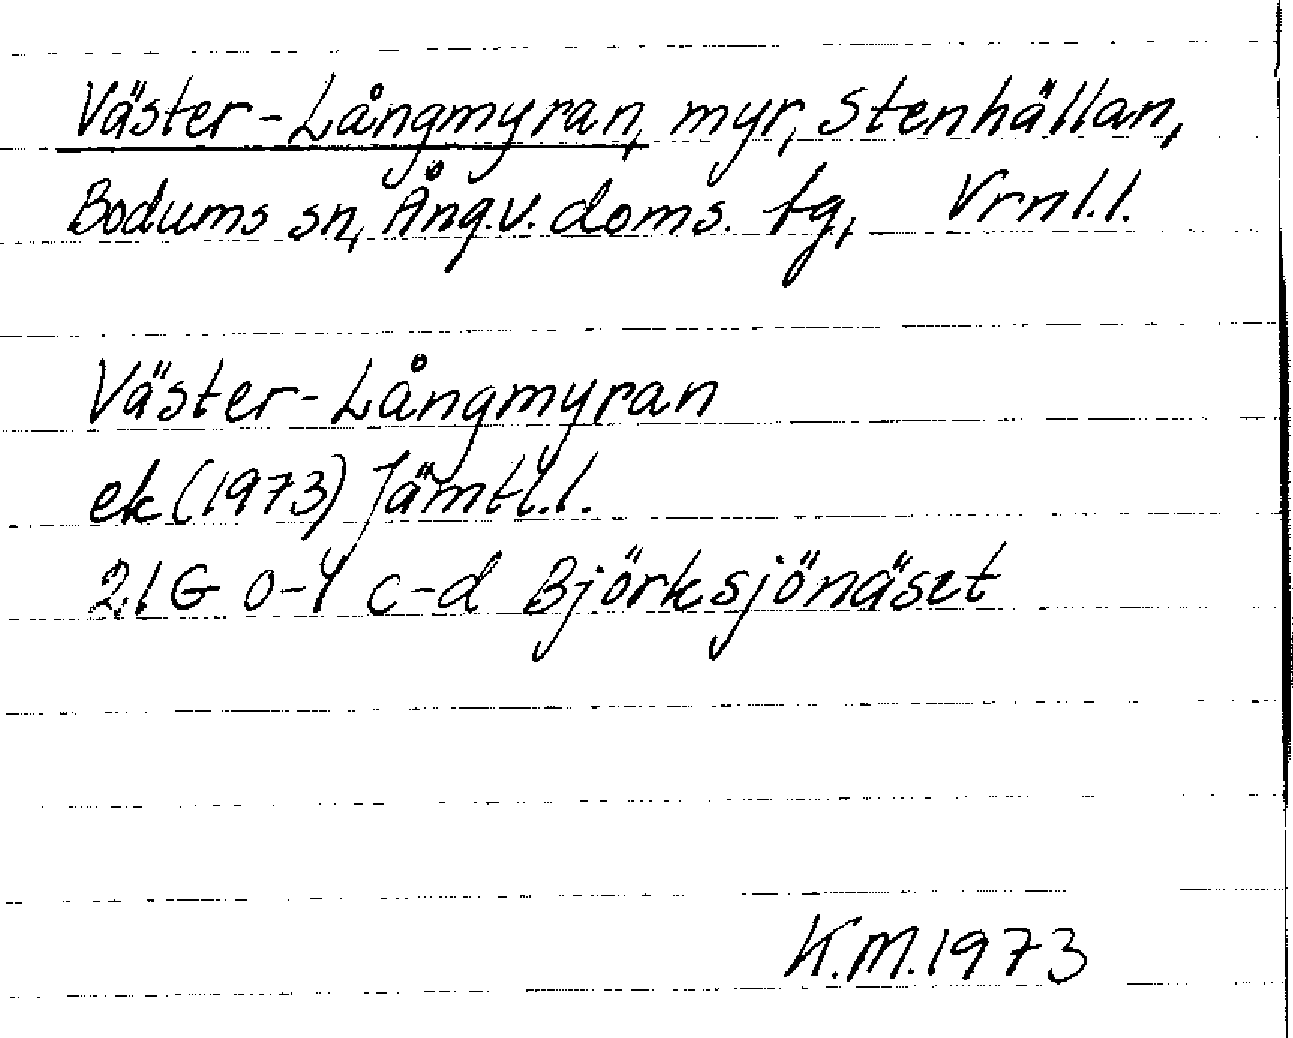 Väster-Långmyran, myr, Stenhällan,
Bodums sn, Ång.v. doms. tg, Vrnl.l.
Väster-Långmyran
ek (1973) Jämtl.l.
21G 0-4 c-d Björksjönäset
K.M. 1973